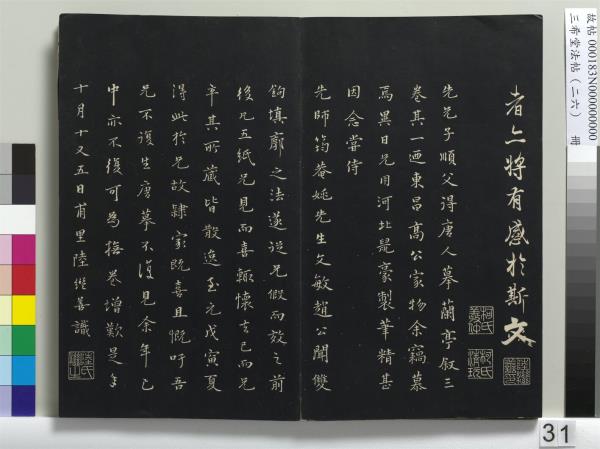 者亦將有感於斯文
先兄子順父得唐人摹蘭亭叙三
卷其一迺東昌高公家物余竊慕
焉異日兄用河北鼠豪製筆精甚
因念嘗侍
先師筠菴姚先生文敏趙公聞雙
鉤填廓之法遂從兄假而效之前
後凡五紙兄見而喜輒懷去已而兄
卒其所藏皆散逸至元戊寅夏
得此於兄故隸家既喜且慨吁吾
兄不復生唐摹不復見余年已
中亦不復可為撫卷增歎是年
十月十又五日甫里陸繼善識
故帖 000183N000000000
三希堂法帖(二六) 冊
31